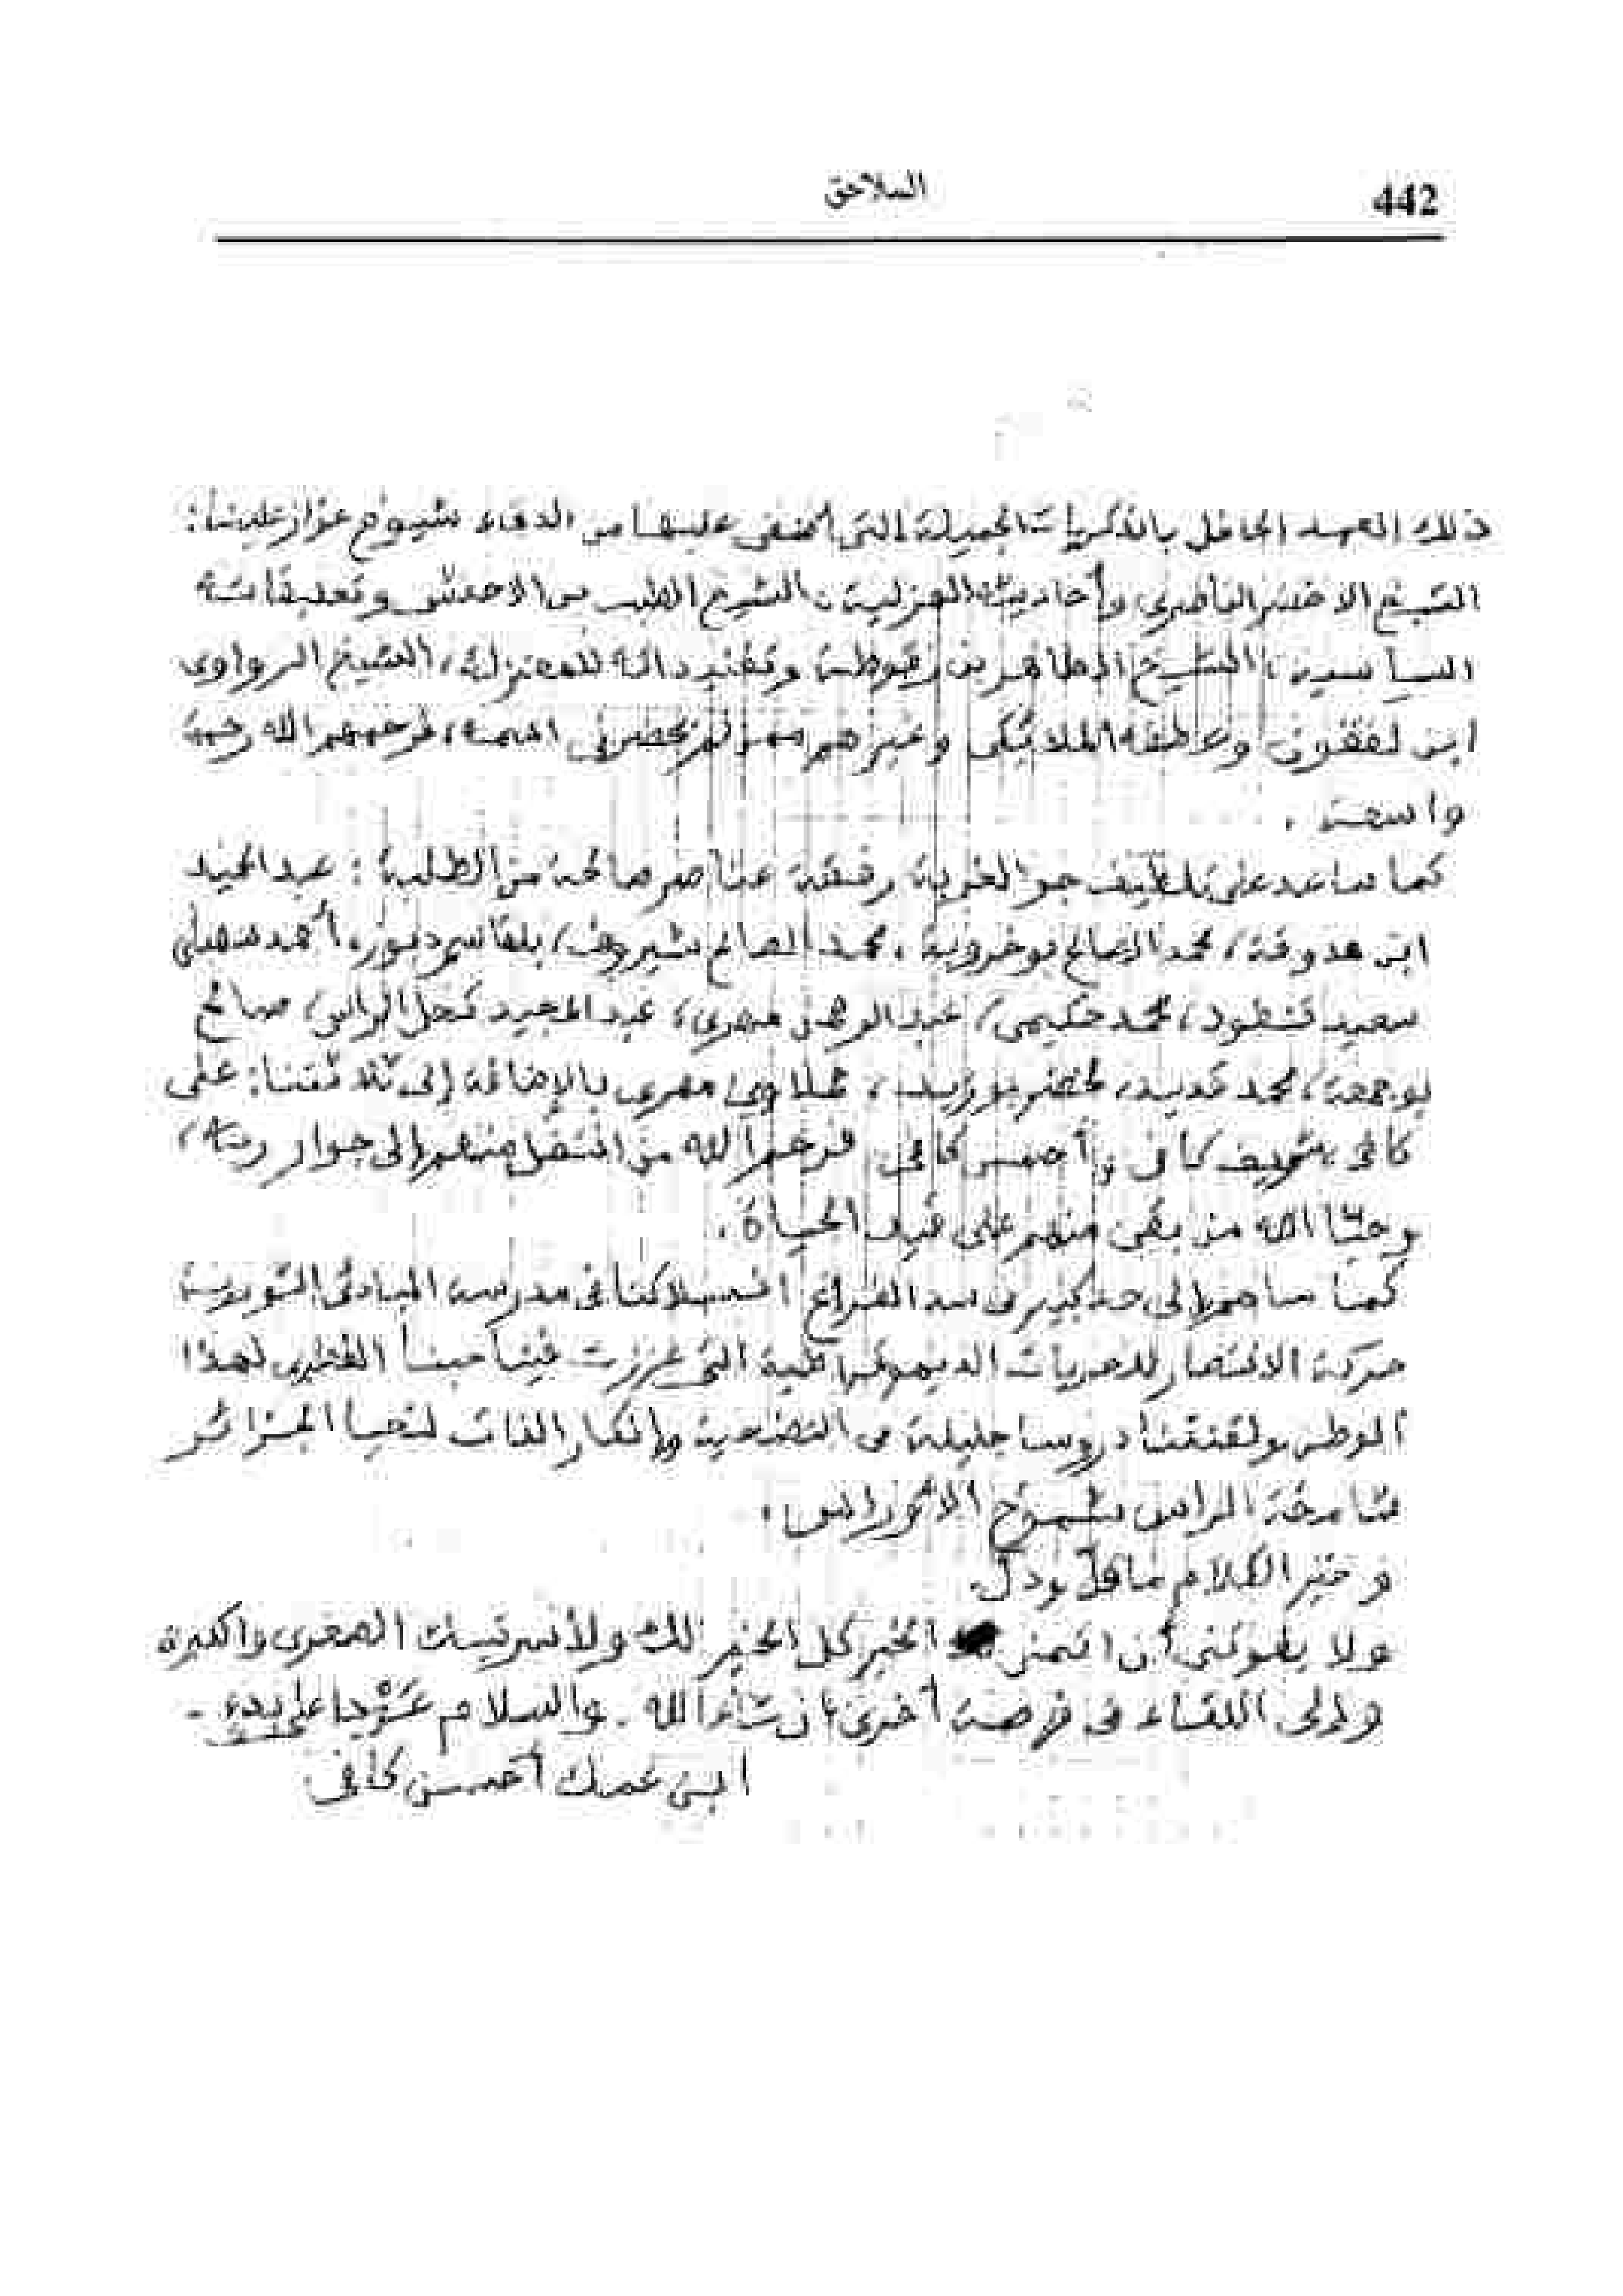 442
الملاحق
ذلك العهد الحافل بالذكريات الجميلة التي أضفى عليها من الدفء شيوخ عزاز علينا:
الشيخ الاخضر الناصري وأحاديثه الهزلية، الشيخ الطيب بن الاحنش وتعليقاته
السياسية، الشيخ الطاهر بن زقوطة وتفنيداته للمعتزلة، الشيخ الزواوي
ابن لفقون وعاطفته الملائكي وغيرهم ممن لم يحضرني اسمه، فرحمهم الله رحمة
واسعة.
كما ساعد على تلطيف جو الغربة رفقة عناصر صالحة من الطلبة: عبد الحميد
ابن هدوقة، محمد الصالح بوخروبة، محمد الصالح شيروف، بلقاسم أحمد
سعيد قشطود، محمد حكيمي، عبد الرحمن مهري، عبد المجيد كحل الراس، صالح
بوجمعة، محمد قديد، لخضر بوزيد، مهري بالإضافة إلى ثلاثتنا: علي
كافي، شريف كافي وأحسن كافي فرحم الله من انتقل منهم إلى جوار ربه،
وحيّا الله من بقي منهم على قيد الحياة.
كما ساهم إلى حد كبير في سد الفراغ انسلاكنا في مدرسة المبادئ الثورية
حركة الانتصار للحريات الديموقراطية التي عززت فينا حبنا الفطري لهذا
الوطن ولقنتنا دروسا جليلة في التضحية وإنكار الذات لتحيا الجزائر
شامخة الراس شموخ الأوراس.
وخير الكلام ما قل ودل.
ولا يفوتني أن اتمنى الخير كل الخير لك ولأسرتيك الصغرى والكبيرة
وإلى اللقاء في فرصة أخرى إن شاء الله. والسلام عَوْدا على بدء.
ابن عمك أحسن كافي